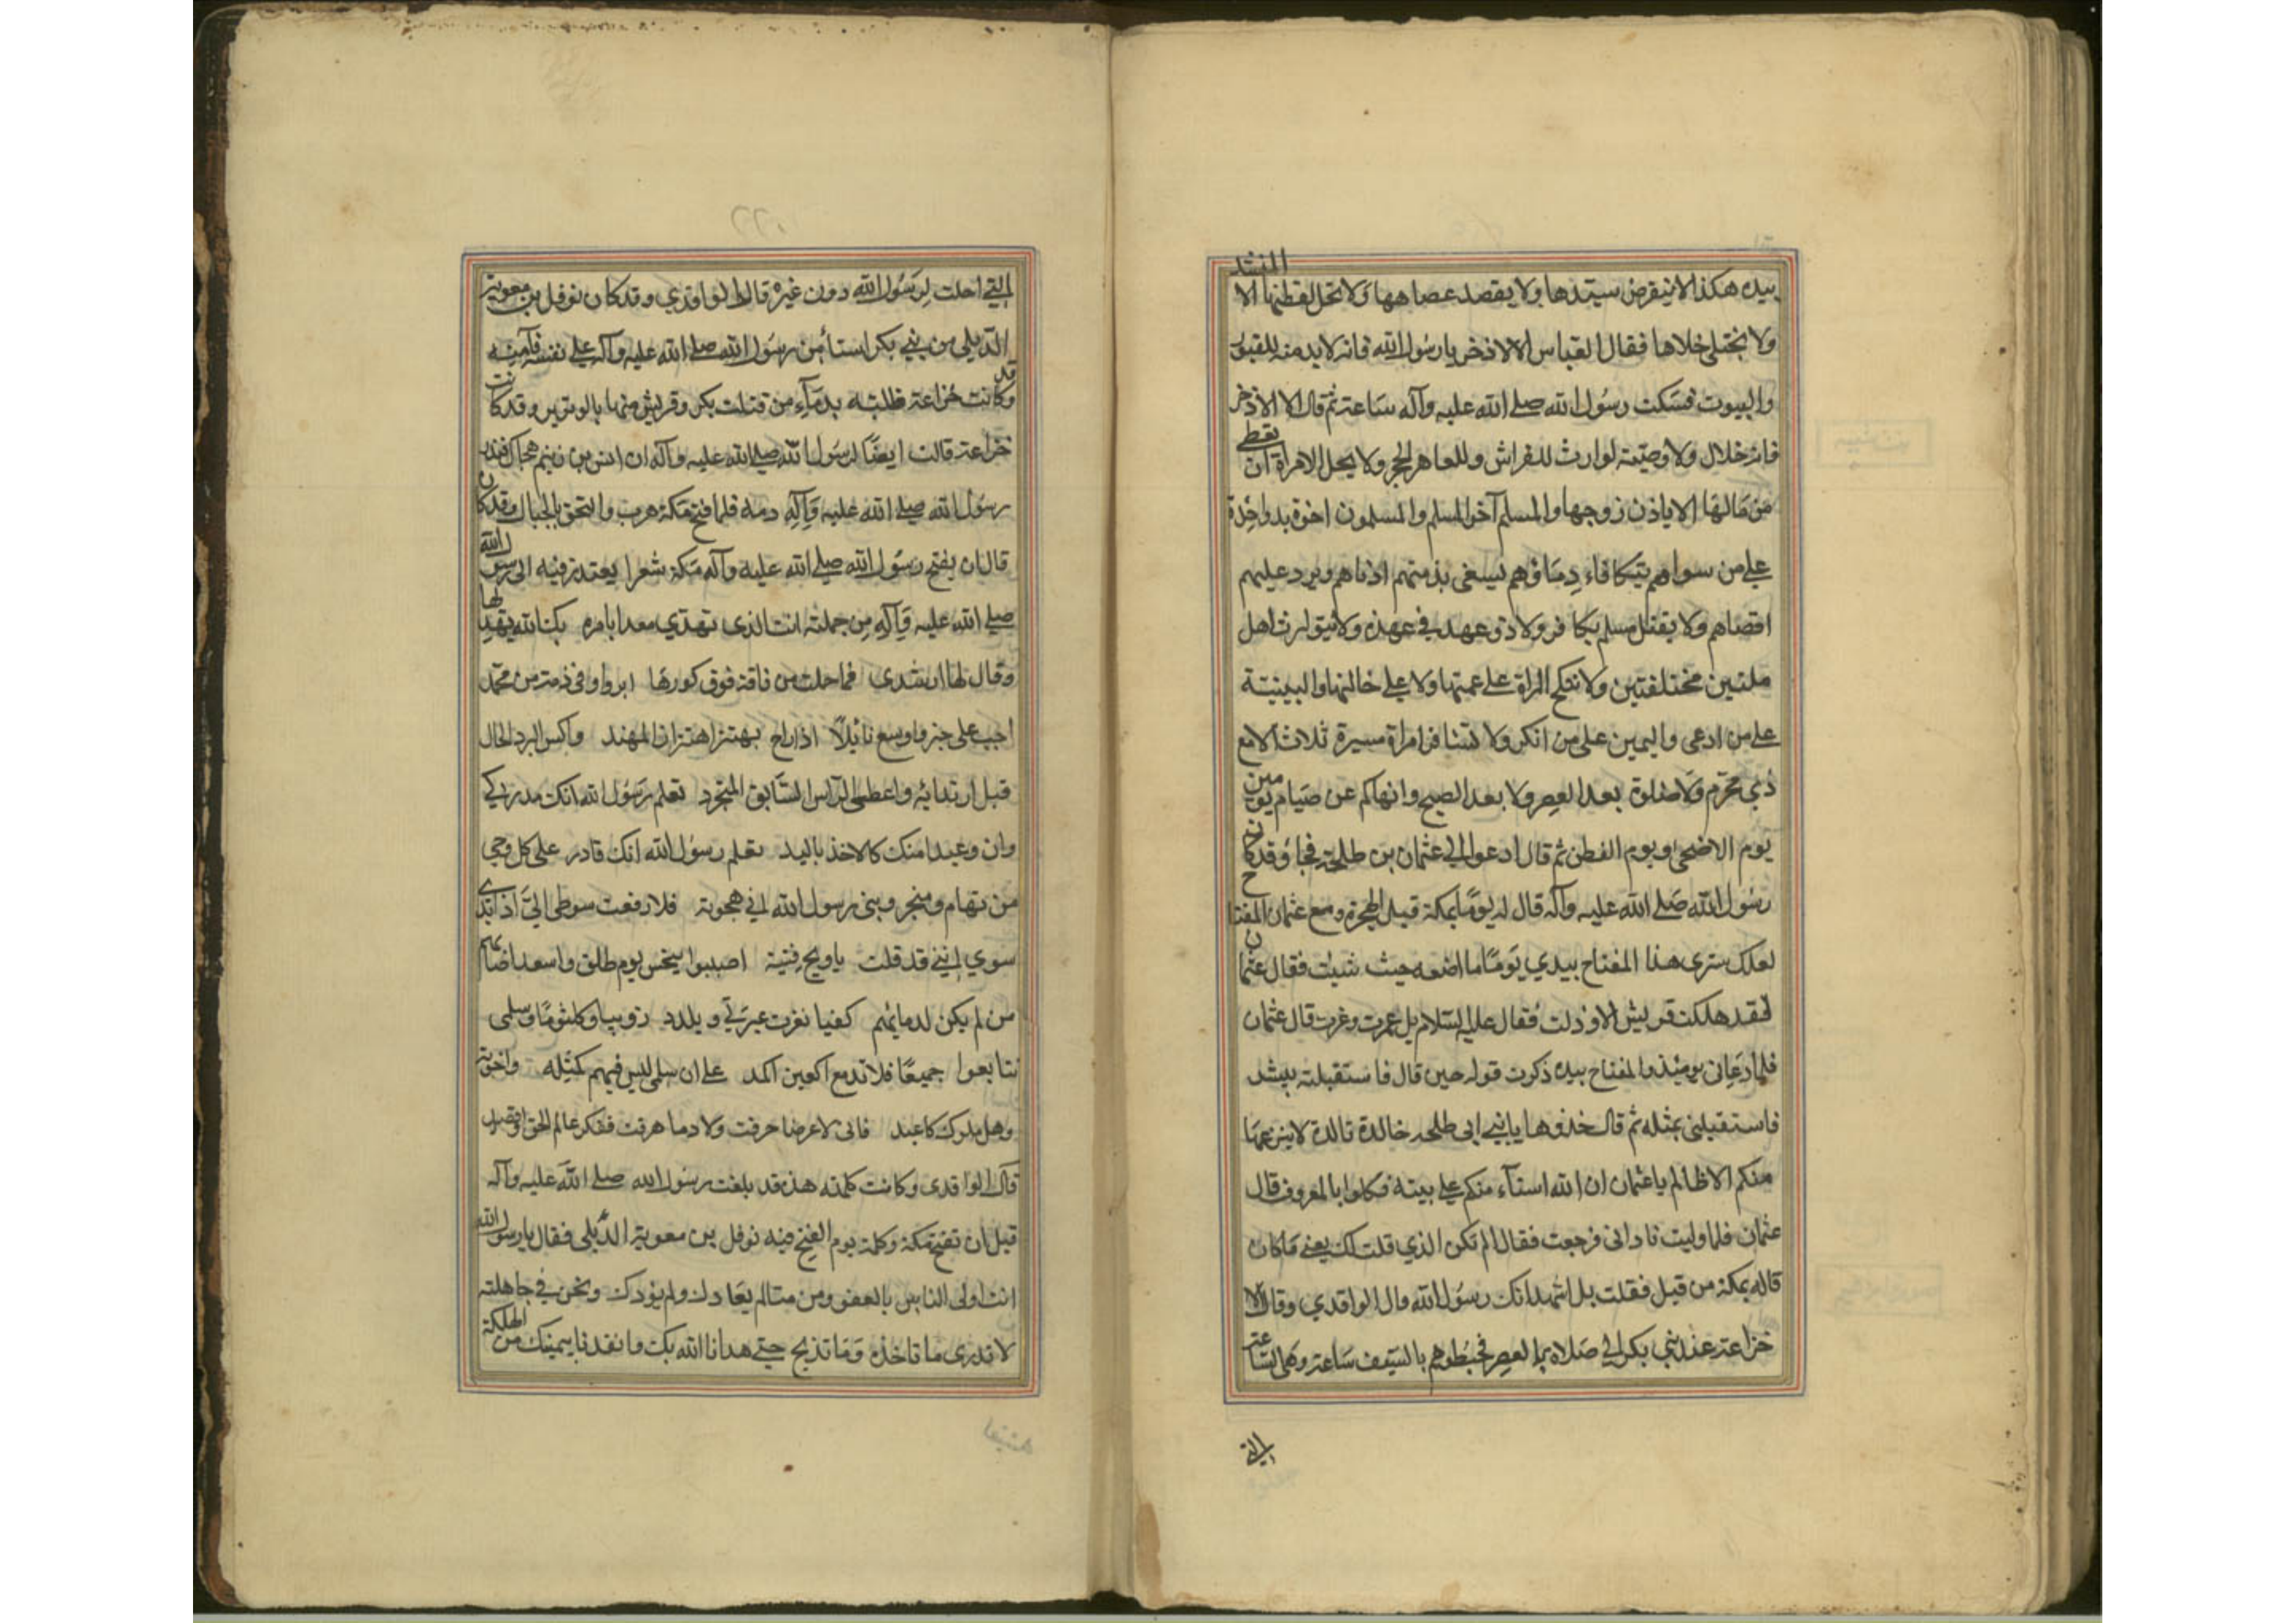 بيده هكذا لا ينفرض سيدها ولا يقصد عصاهها ولا تحل لقطتها الا المنشد
ولا يختلى خلاها فقال العباس الا الاذخر يا رسول الله فانه لا بد منه للقبور
والبيوت فسكت رسول الله صلى الله عليه وآله ساعة ثم قال الا الاذخر
فانه حلال ولا وصية لوارث للفراش وللعاهر الحجر ولا يحل لامراة ان تعطى
من مالها الا باذن زوجها والمسلم آخو المسلم والمسلمون اخوة يد واحدة
على من سواهم يتكافاء دماؤهم يسعى بذمتهم ادناهم ويرد عليهم
اقصاهم ولا يقتل مسلم بكافر ولا ذو عهد في عهده ولا يتوارث اهل
ملتين مختلفتين ولا تنكح المراة على عمتها ولا على خالتها والبينة
على من ادعى واليمين على من انكر ولا تسافر امراة مسيرة ثلاث الا مع
ذي محرم ولا صلوة بعد العصر ولا بعد الصبح وانهاكم عن صيام يومين
يوم الاضحى ويوم الفطر ثم قال ادعوا لي عثمان بن طلحة فجاؤ وقد كان
رسول الله صلى الله عليه وآله قال له يوما بمكة قبل الهجرة ومع عثمان المفتاح
لعلك سترى هذا المفتاح بيدي يوما ما اضعه حيث شيت فقال عثمان
لقد هلكت قريش الا وذلت فقال عليه السلام بل عمرت وعزت قال عثمان
فلما دعاني يومئذ والمفتاح بيده ذكرت قوله حين قال فاستقبلته ببشر
فاستقبلني بمثله ثم قال خذوها يا بني ابي طلحه خالدة تالدة لا ينزعها
منكم الا ظالم يا عثمان ان الله استآء منكم على بيته فكلوا بالمعروف قال
عثمان فلما وليت ناداني فرجعت فقال الم تكن الذي قلت لك يعني ما كان
قاله بمكة من قبل فقلت بل اشهد انك رسول الله قال الواقدي وقال الا
خزاعة عن بني بكر الى صلاة العصر فخبطوهم بالسيف ساعة وهي الساعة
التي
التي احلت لرسول الله دون غيره قال الواقدي وقد كان نوفل بن معوية
الديلي من بني بكر استأمن رسول الله صلى الله عليه وآله على نفسه فآمنه
وكانت خزاعة تطلبه بدمآء من قتلت بكر وقريش منها بالوتير وقد كانت
خزاعة قالت ايضا لرسول الله صلى الله عليه وآله ان انس بن زنيم هجاك فهدر
رسول الله صلى الله عليه وآله دمه فلما فتح مكة هرب والتحق بالجبال وقد كان
قال ان يفتح رسول الله صلى الله عليه وآله مكة شعرا يعتذر فيه الى رسول الله
صلى الله عليه وآله من جملته انت الذي تهدي معدا بامره بك الله يهديها
وقال لها ارشدي فما حملت من ناقة فوق كورها ابر واوفى ذمة من محمد
احب على خير واوسع نائلا اذا راح يهتز اهتزاز المهند واكس البرد الخال
قبل ارتدائه واعطى الراس السابق المتجرد تعلم رسول الله انك مدركي
وان وعيدا منك كالاخذ باليد تعلم رسول الله انك قادر على كل وحي
من تهام ومنجد ونبي رسول الله اني هجوته فلا رفعت سوطي الي اذا يدي
سوي انني قد قلت يا ويح فتية اصيبوا بنحس يوم طلق واسعد اصابهم
من لم يكن لدمائهم كفيا نعزت عبرتي وبلدد ذويبا وكلثوما وسلمى
تتابعوا جميعا فلا تدمع العين اكمد على ان سلمى ليس فيهم كمثله واخوته
وهل ملوك كاعبد فانى لا عرضا حرقت ولا دما هرقت ففكر عالم الحق واقصد
قال الواقدى وكانت كلمته هذه قد بلغت رسول الله صلى الله عليه وآله
قبل ان تفتح مكة وكلمة يوم الفتح فيه نوفل بن معوية الديلي فقال يا رسول الله
انت اولى الناس بالعفو ومن منا لم يعادك ولم يؤذك ونحن في جاهلته
لا ندري ما ناخذ وما نذبح حتى هدانا الله بك وانقذنا بيمينك من الهلكة